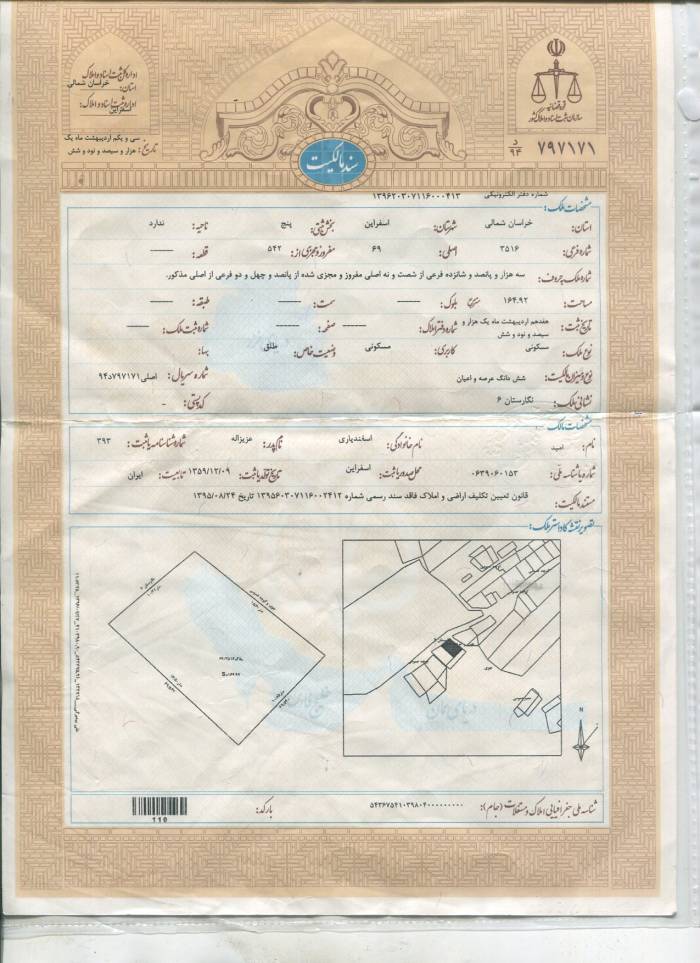 اداره کل ثبت اسناد و املاک
استان: خراسان شمالی
اداره ثبت اسناد و املاک:
اسفراین
تاریخ: سی و یکم اردیبهشت ماه یک هزار و سیصد و نود و شش
قوه قضائیه
سازمان ثبت اسناد و املاک کشور
۷۹۷۱۷۱ د ۹۴
سند مالکیت
شماره دفتر الکترونیکی ۱۳۹۶۲۰۳۰۷۱۱۶۰۰۰۴۱۳
مشخصات ملک:
استان: خراسان شمالی شهرستان: اسفراین بخش ثبتی: پنج ناحیه: ندارد
شماره فرعی: ۳۵۱۶ اصلی: ۶۹ مفروز و مجزی از: ۵۴۲ قطعه: ------
شماره ملک به حروف: سه هزار و پانصد و شانزده فرعی از شصت و نه اصلی مفروز و مجزی شده از پانصد و چهل و دو فرعی از اصلی مذکور.
مساحت: ۱۶۴.۹۲ مترمربع بلوک: ------ سمت: ------ طبقه: ------
تاریخ ثبت: هفدهم اردیبهشت ماه یک هزار و سیصد و نود و شش شماره دفتر املاک: ------ صفحه: ------ شماره ثبت ملک: ------
نوع ملک: مسکونی کاربری: مسکونی وضعیت خاص: طلق بها:
نوع و میزان مالکیت: شش دانگ عرصه و اعیان شماره سریال: اصلی۷۹۷۱۷۱د۹۴
نشانی ملک: نگارستان ۶ کد پستی: -
مشخصات مالک:
نام: امید نام خانوادگی: اسفندیاری نام پدر: عزیزاله شماره شناسنامه یا ثبت: ۳۹۳
شماره یا شناسه ملی: ۰۶۳۹۰۶۰۱۵۳ محل صدور یا ثبت: اسفراین تاریخ تولد یا ثبت: ۱۳۵۹/۱۲/۰۹ تابعیت: ایران
مستند مالکیت: قانون تعیین تکلیف اراضی و املاک فاقد سند رسمی شماره ۱۳۹۵۶۰۳۰۷۱۱۶۰۰۲۴۱۲ تاریخ ۱۳۹۵/۰۸/۲۴
تصویر نقشه کاداستر ملک:
خلیج فارس
دریای عمان
N
شناسه ملی جغرافیایی املاک و مستغلات (جام): ۵۴۳۶۷۵۴۱۰۳۹۸۰۴۰۰۰۰۰۰۰۰۰
بارکد:
110